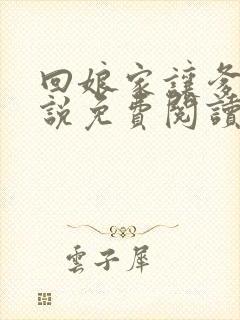 回娘家讓爹
說免費閱讀
雲子犀